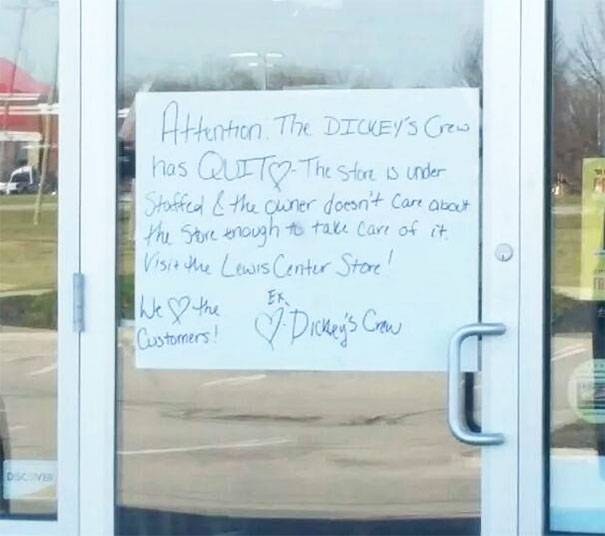 Attention: The DICKEY'S Crew
has QUIT♡-The store is under
Staffed & the owner doesn't care about
the store enough to take care of it.
Visit the Lewis Center Store!
We ♡ the
Customers!
Ex.
♡-Dickey's Crew
DISCOVER